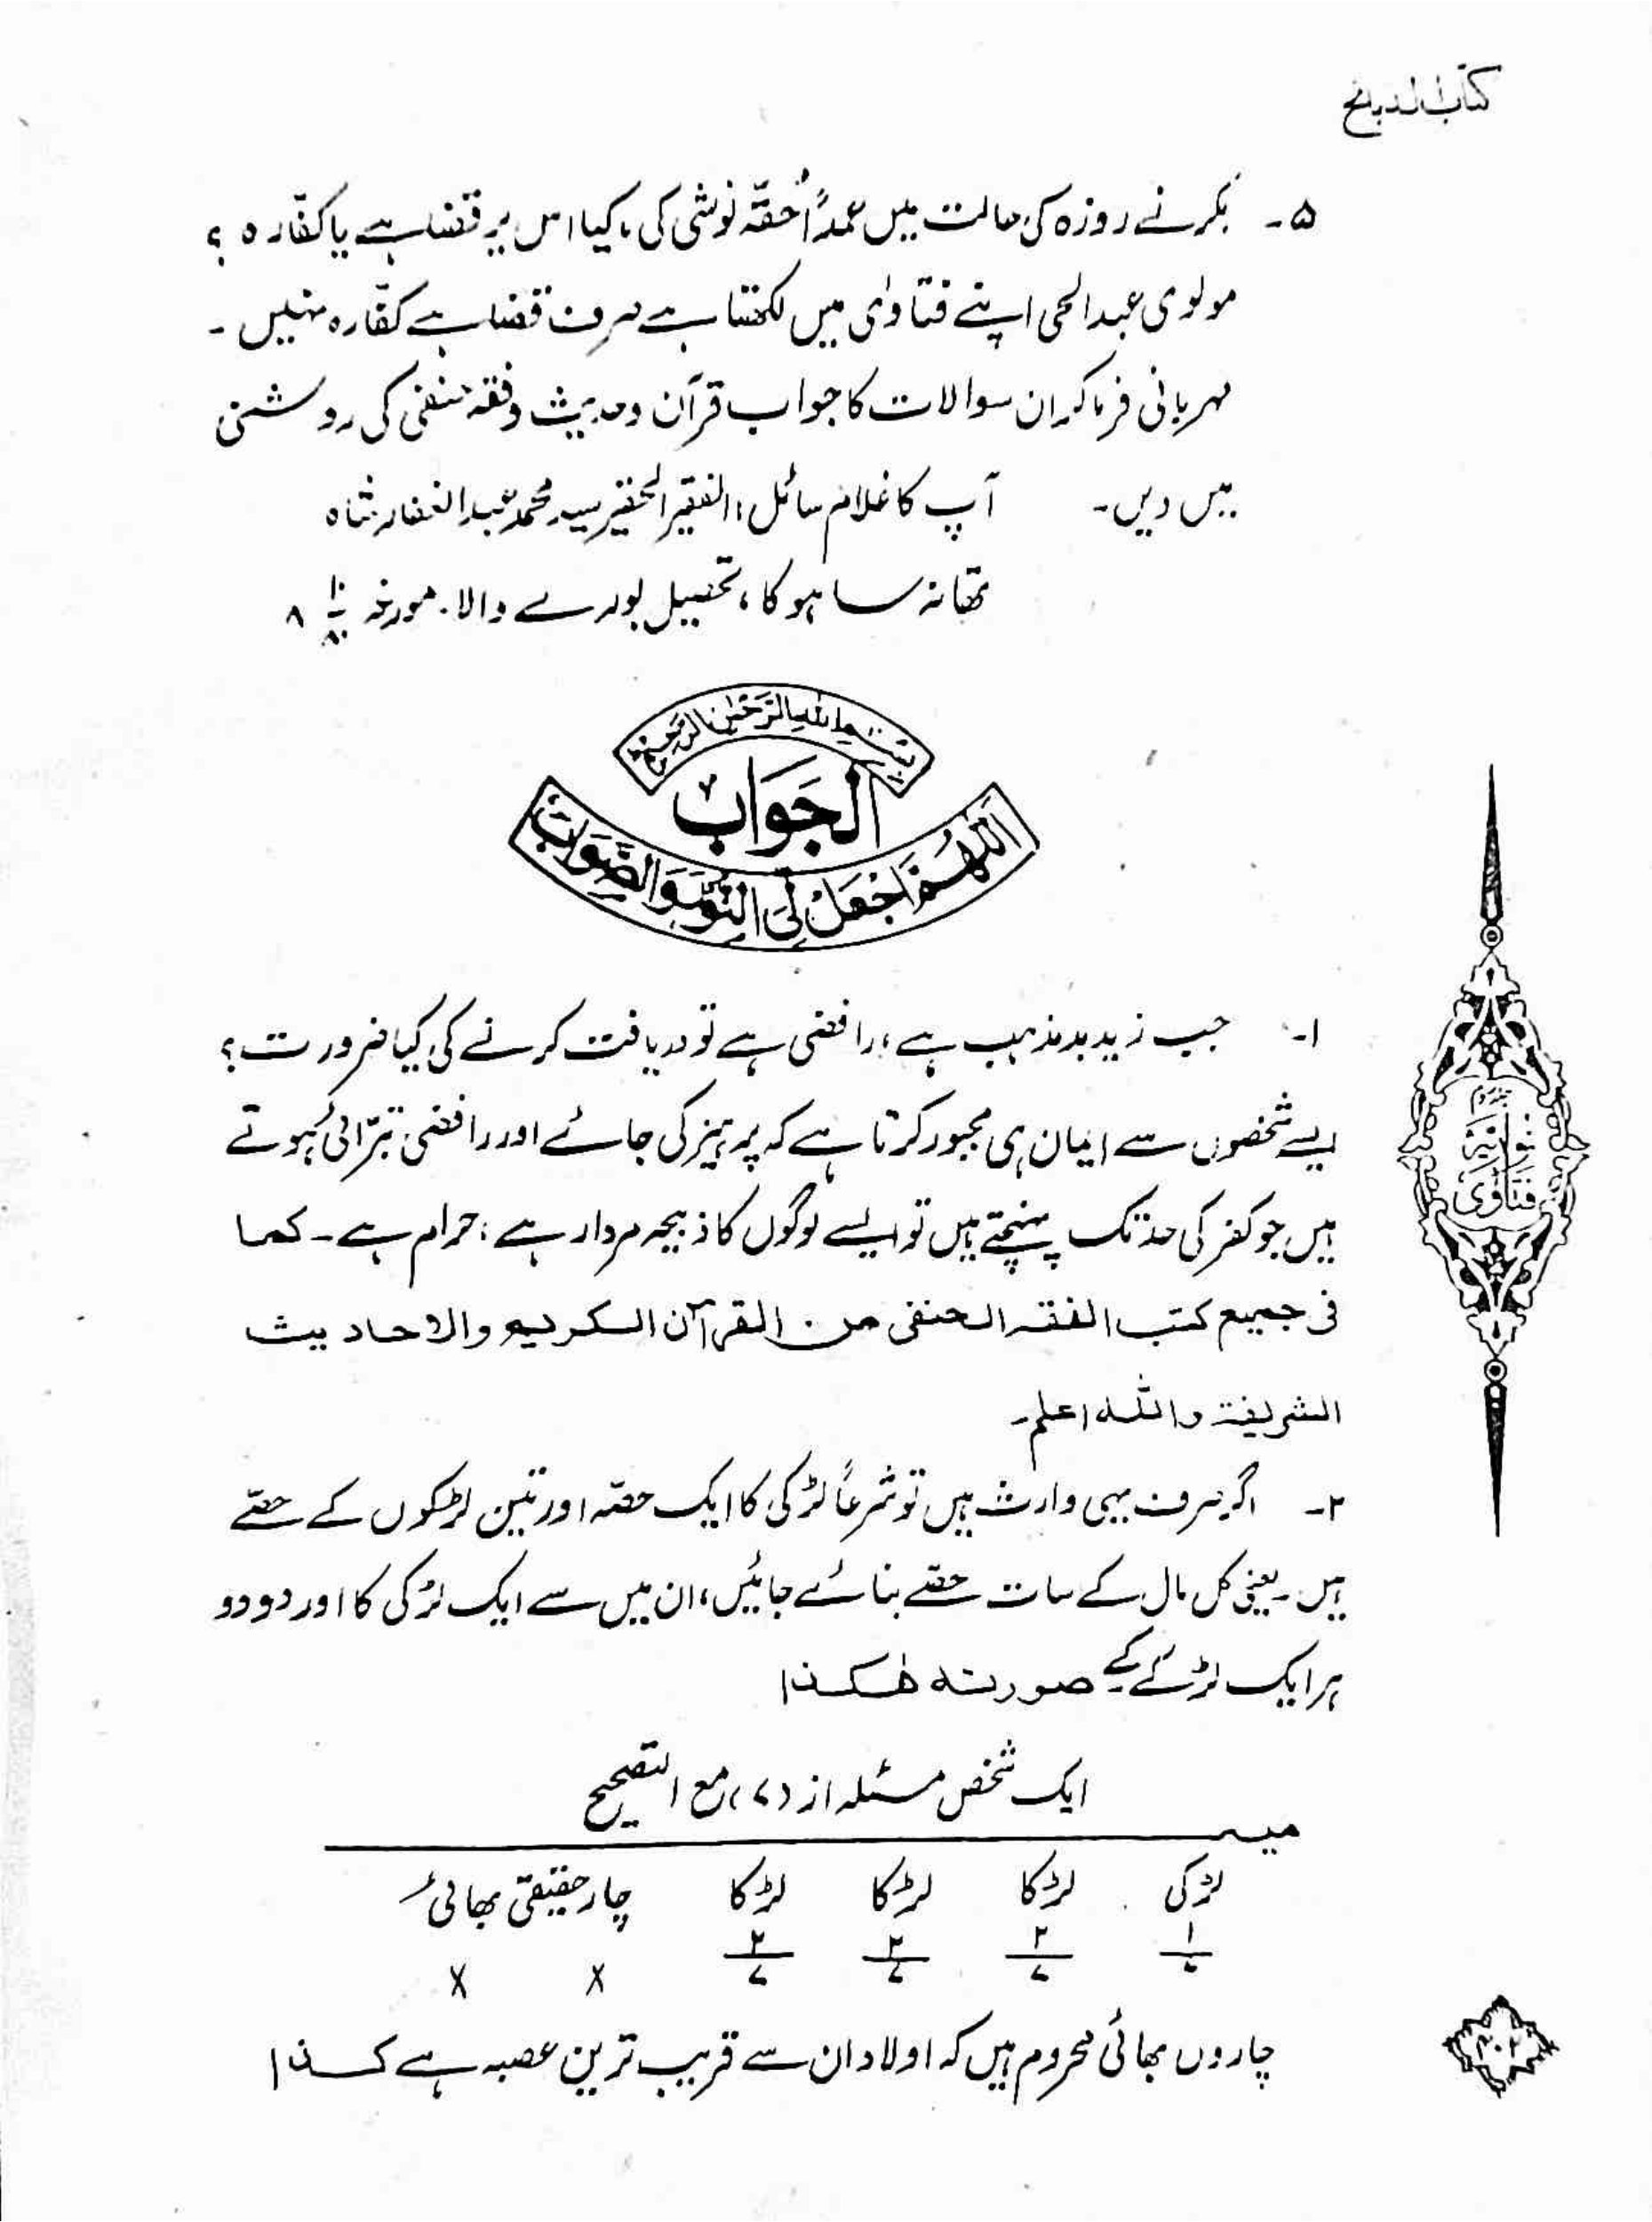 کتاب الذبائح
۵۔ بکر نے روزہ کی حالت میں عمداً حُقّہ نوشی کی، کیا اس پر قضا ہے یا کفّارہ؟
مولوی عبدالحی اپنے فتاوٰی میں لکھتا ہے صرف قضا ہے کفّارہ نہیں۔
مہربانی فرماکر ان سوالات کا جواب قرآن و حدیث و فقہ حنفی کی روشنی
میں دیں۔ آپ کا غلام سائل: الفقیر الحقیر سید محمد عبدالغفار شاہ
تھانہ ساہوکا، تحصیل بورے والا۔ مورخہ
بِسْمِ اللهِ الرَّحْمٰنِ الرَّحِيْمِ
الجَوَاب
اَللّٰهُمَّ اجْعَلْ لِیَ النُّوْرَ وَالصَّوَابَ
۱۔ جب زید بدمذہب ہے، رافضی ہے تو دریافت کرنے کی کیا ضرورت؟
ایسے شخصوں سے ایمان ہی مجبور کرتا ہے کہ پرہیز کی جائے اور رافضی تبرّائی ہوتے
ہیں جو کفر کی حد تک پہنچتے ہیں تو ایسے لوگوں کا ذبیحہ مردار ہے، حرام ہے۔ کما
فی جمیع کتب الفقہ الحنفی من القرآن الکریم والاحادیث
الشریفة واللہ اعلم۔
۲۔ اگر صرف یہی وارث ہیں تو شرعاً لڑکی کا ایک حصّہ اور تین لڑکوں کے حصّے
ہیں۔ یعنی کل مال کے سات حصّے بنائے جائیں، ان میں سے ایک لڑکی کا اور دو دو
ہر ایک لڑکے کے صورتہ ھٰکذا
ایک شخص مسئلہ از (۷) مع التصحیح
میـــــت
لڑکی لڑکا لڑکا لڑکا چار حقیقی بھائی
۱/۷ ۲/۷ ۲/۷ ۲/۷ x x
چاروں بھائی محروم ہیں کہ اولاد ان سے قریب ترین عصبہ ہے کذا
فتاوٰی نوریہ